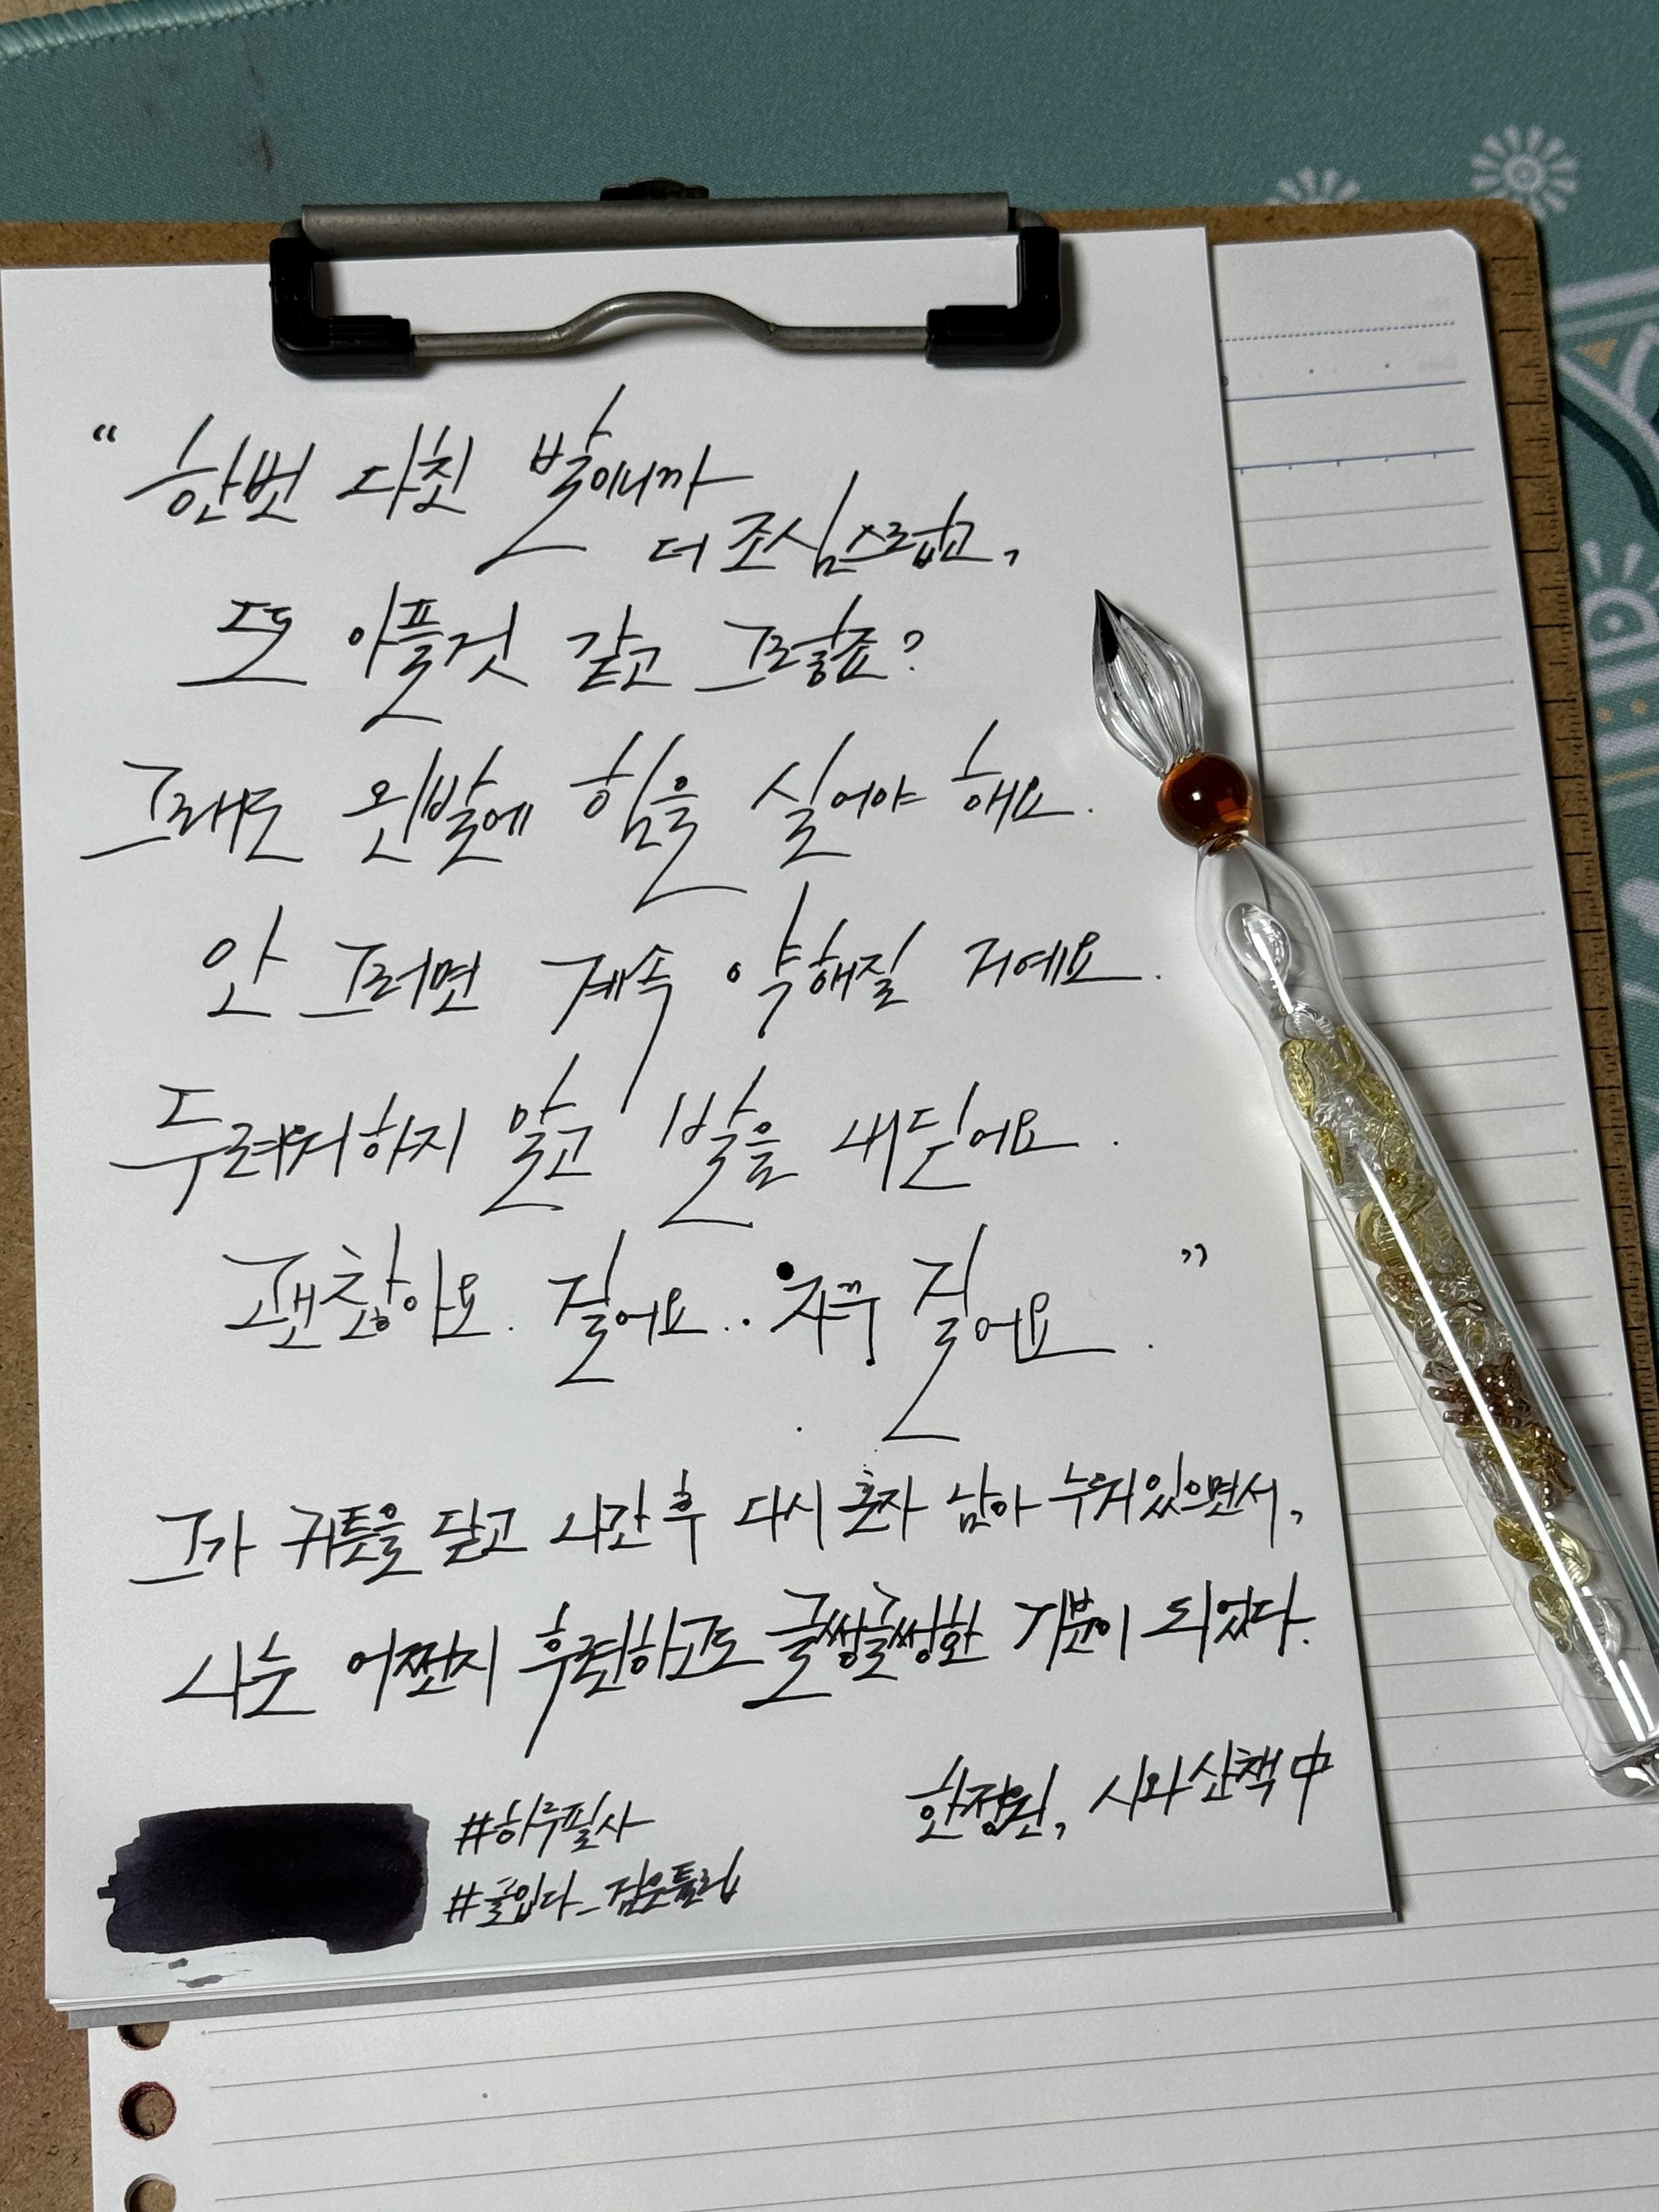 “한번 다친 발이니까
더 조심스럽고,
또 아플것 같고 그렇죠?
그래도 왼발에 힘을 실어야 해요.
안 그러면 계속 약해질 거예요.
두려워하지 말고 발을 내딛어요.
괜찮아요. 걸어요.. 자꾸 걸어요.”
그가 커튼을 닫고 나간 후 다시 혼자 남아 누워있으면서,
나는 어쩐지 후련하고도 글썽글썽한 기분이 되었다.
한정원, 시와 산책 中
#하루필사
#글입다_검은튤립